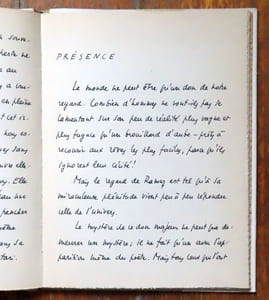 PRÉSENCE
Le monde ne peut être qu'un don de notre
regard. Combien d'hommes ne vont-ils pas se
lamentant sur son peu de réalité plus vague et
plus fugace qu'un brouillard d'aube – prêts à
recourir aux rêves les plus faciles, parce qu'ils
ignorent leur cécité!
Mais le regard de Ramuz est tel qu'à sa
miraculeuse plénitude vient peu à peu répondre
celle de l'univers.
Le mystère de ce don majeur ne peut que de-
meurer un mystère, il ne fait qu'un avec l'ap-
parition même du poète. Mais tous ceux qu'ont